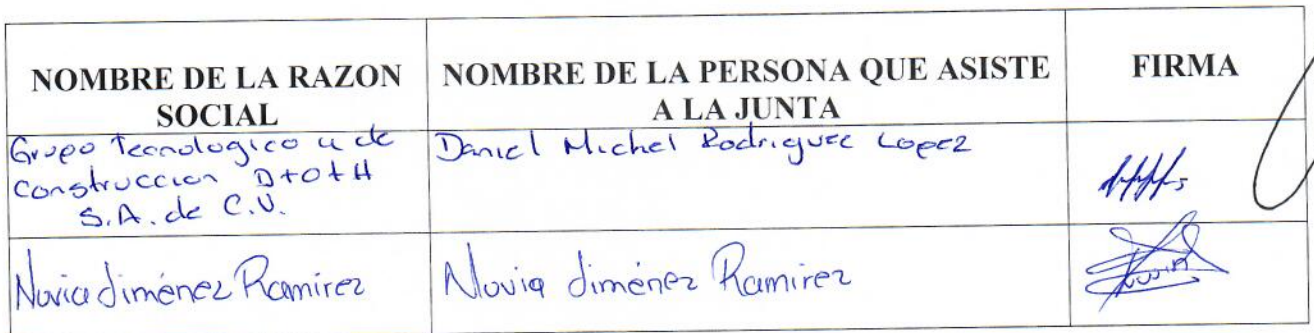 NOMBRE DE LA RAZON
SOCIAL
NOMBRE DE LA PERSONA QUE ASISTE
A LA JUNTA
FIRMA
Grupo Tecnologico y de
Construccion D+O+H
S.A. de C.V.
Daniel Michel Rodriguez Lopez
Novia Jiménez Ramirez
Novia Jiménez Ramirez